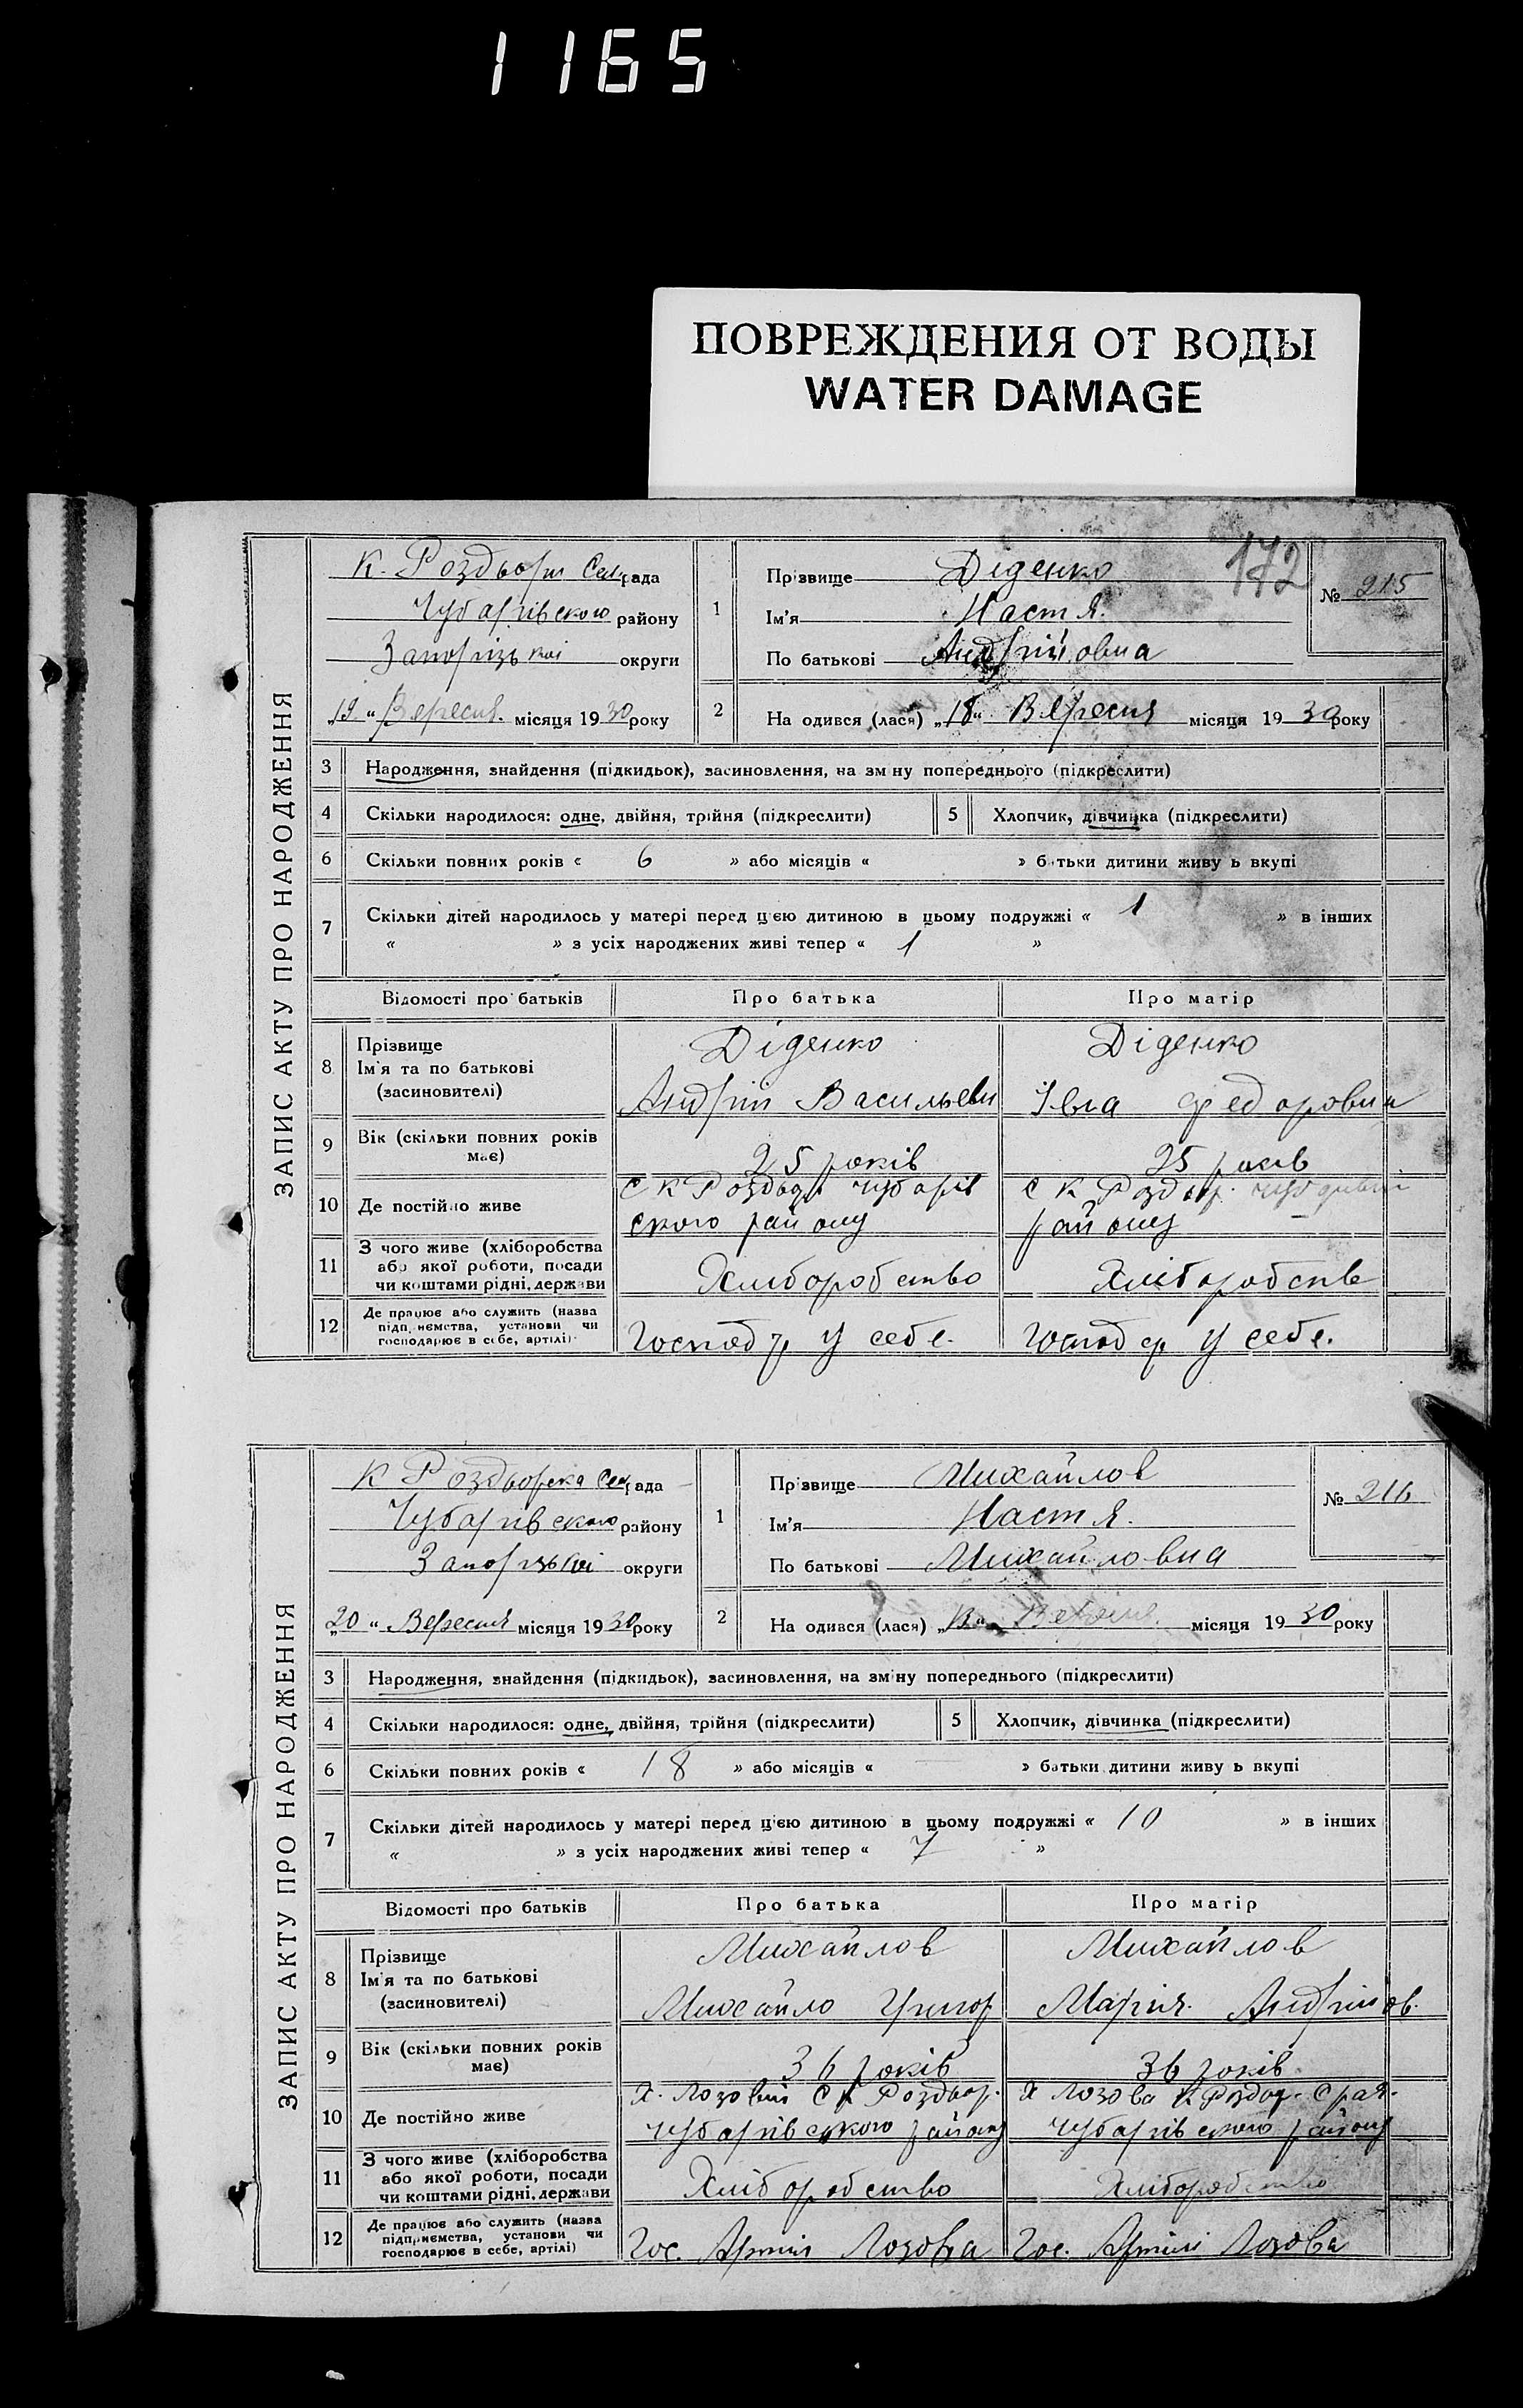 1165
ПОВРЕЖДЕНИЯ ОТ ВОДЫ
WATER DAMAGE
172
ЗАПИС АКТУ ПРО НАРОДЖЕННЯ
К. Роздори Сел рада
Чубарівського району
Запорізькоі округи
„19“ Вересня місяця 1930 року
1
Прізвище Діденко
Ім'я Настя.
По батькові Андріївна
№ 215
2
На одився (лася) „18“ Вересня місяця 1930 року
3 Народження, знайдення (підкидьок), засиновлення, на зм ну попереднього (підкреслити)
4 Скільки народилося: одне, двійня, трійня (підкреслити) 5 Хлопчик, дівчинка (підкреслити)
6 Скільки повних років « 6 » або місяців « » батьки дитини живу ь вкупі
7 Скільки дітей народилось у матері перед ц'єю дитиною в цьому подружжі « 1 » в інших
« » з усіх народжених живі тепер « 1 »
Відомості про батьків Про батька Про матір
8 Прізвище
Ім'я та по батькові
(засиновителі)
Діденко
Андрій Васильеви
Діденко
Івга Федоровна
9 Вік (скільки повних років має) 25 років 25 років
10 Де постійно живе
С К Роздори чубарів
ского району
С К Роздор.
району
11 З чого живе (хліборобства
або якої роботи, посади
чи коштами рідні, держави
Хліборобство Хліборобств
12 Де працює або служить (назва
підприємства, установи чи
господарює в себе, артілі)
Господ у себе. Господ у себе.
ЗАПИС АКТУ ПРО НАРОДЖЕННЯ
К Роздорска Сел рада
Чубарівского району
Запорізькоі округи
„20“ Вересня місяця 1930 року
1
Прізвище Михайлов
Ім'я Настя.
По батькові Михайловна
№ 216
2
На одився (лася) Вересня місяця 1930 року
3 Народження, знайдення (підкидьок), засиновлення, на зміну попереднього (підкреслити)
4 Скільки народилося: одне, двійня, трійня (підкреслити) 5 Хлопчик, дівчинка (підкреслити)
6 Скільки повних років « 18 » або місяців « — » батьки дитини живу ь вкупі
7 Скільки дітей народилось у матері перед ц'єю дитиною в цьому подружжі « 10 » в інших
« » з усіх народжених живі тепер « 7 »
Відомості про батьків Про батька Про матір
8 Прізвище
Ім'я та по батькові
(засиновителі)
Михайлов
Михайло Григор
Михайлов
Марія. Андріїов.
9 Вік (скільки повних років має) 36 років 36 років.
10 Де постійно живе
Х. Лозовий С К Роздор.
чубарівского району
Х Лозова К Роздор. С рад.
чубарівского району
11 З чого живе (хліборобства
або якої роботи, посади
чи коштами рідні, держави
Хліборобство Хліборобство
12 Де працює або служить (назва
підприємства, установи чи
господарює в себе, артілі)
Гос. Артіл Лозова Гос. Артілі Лозова